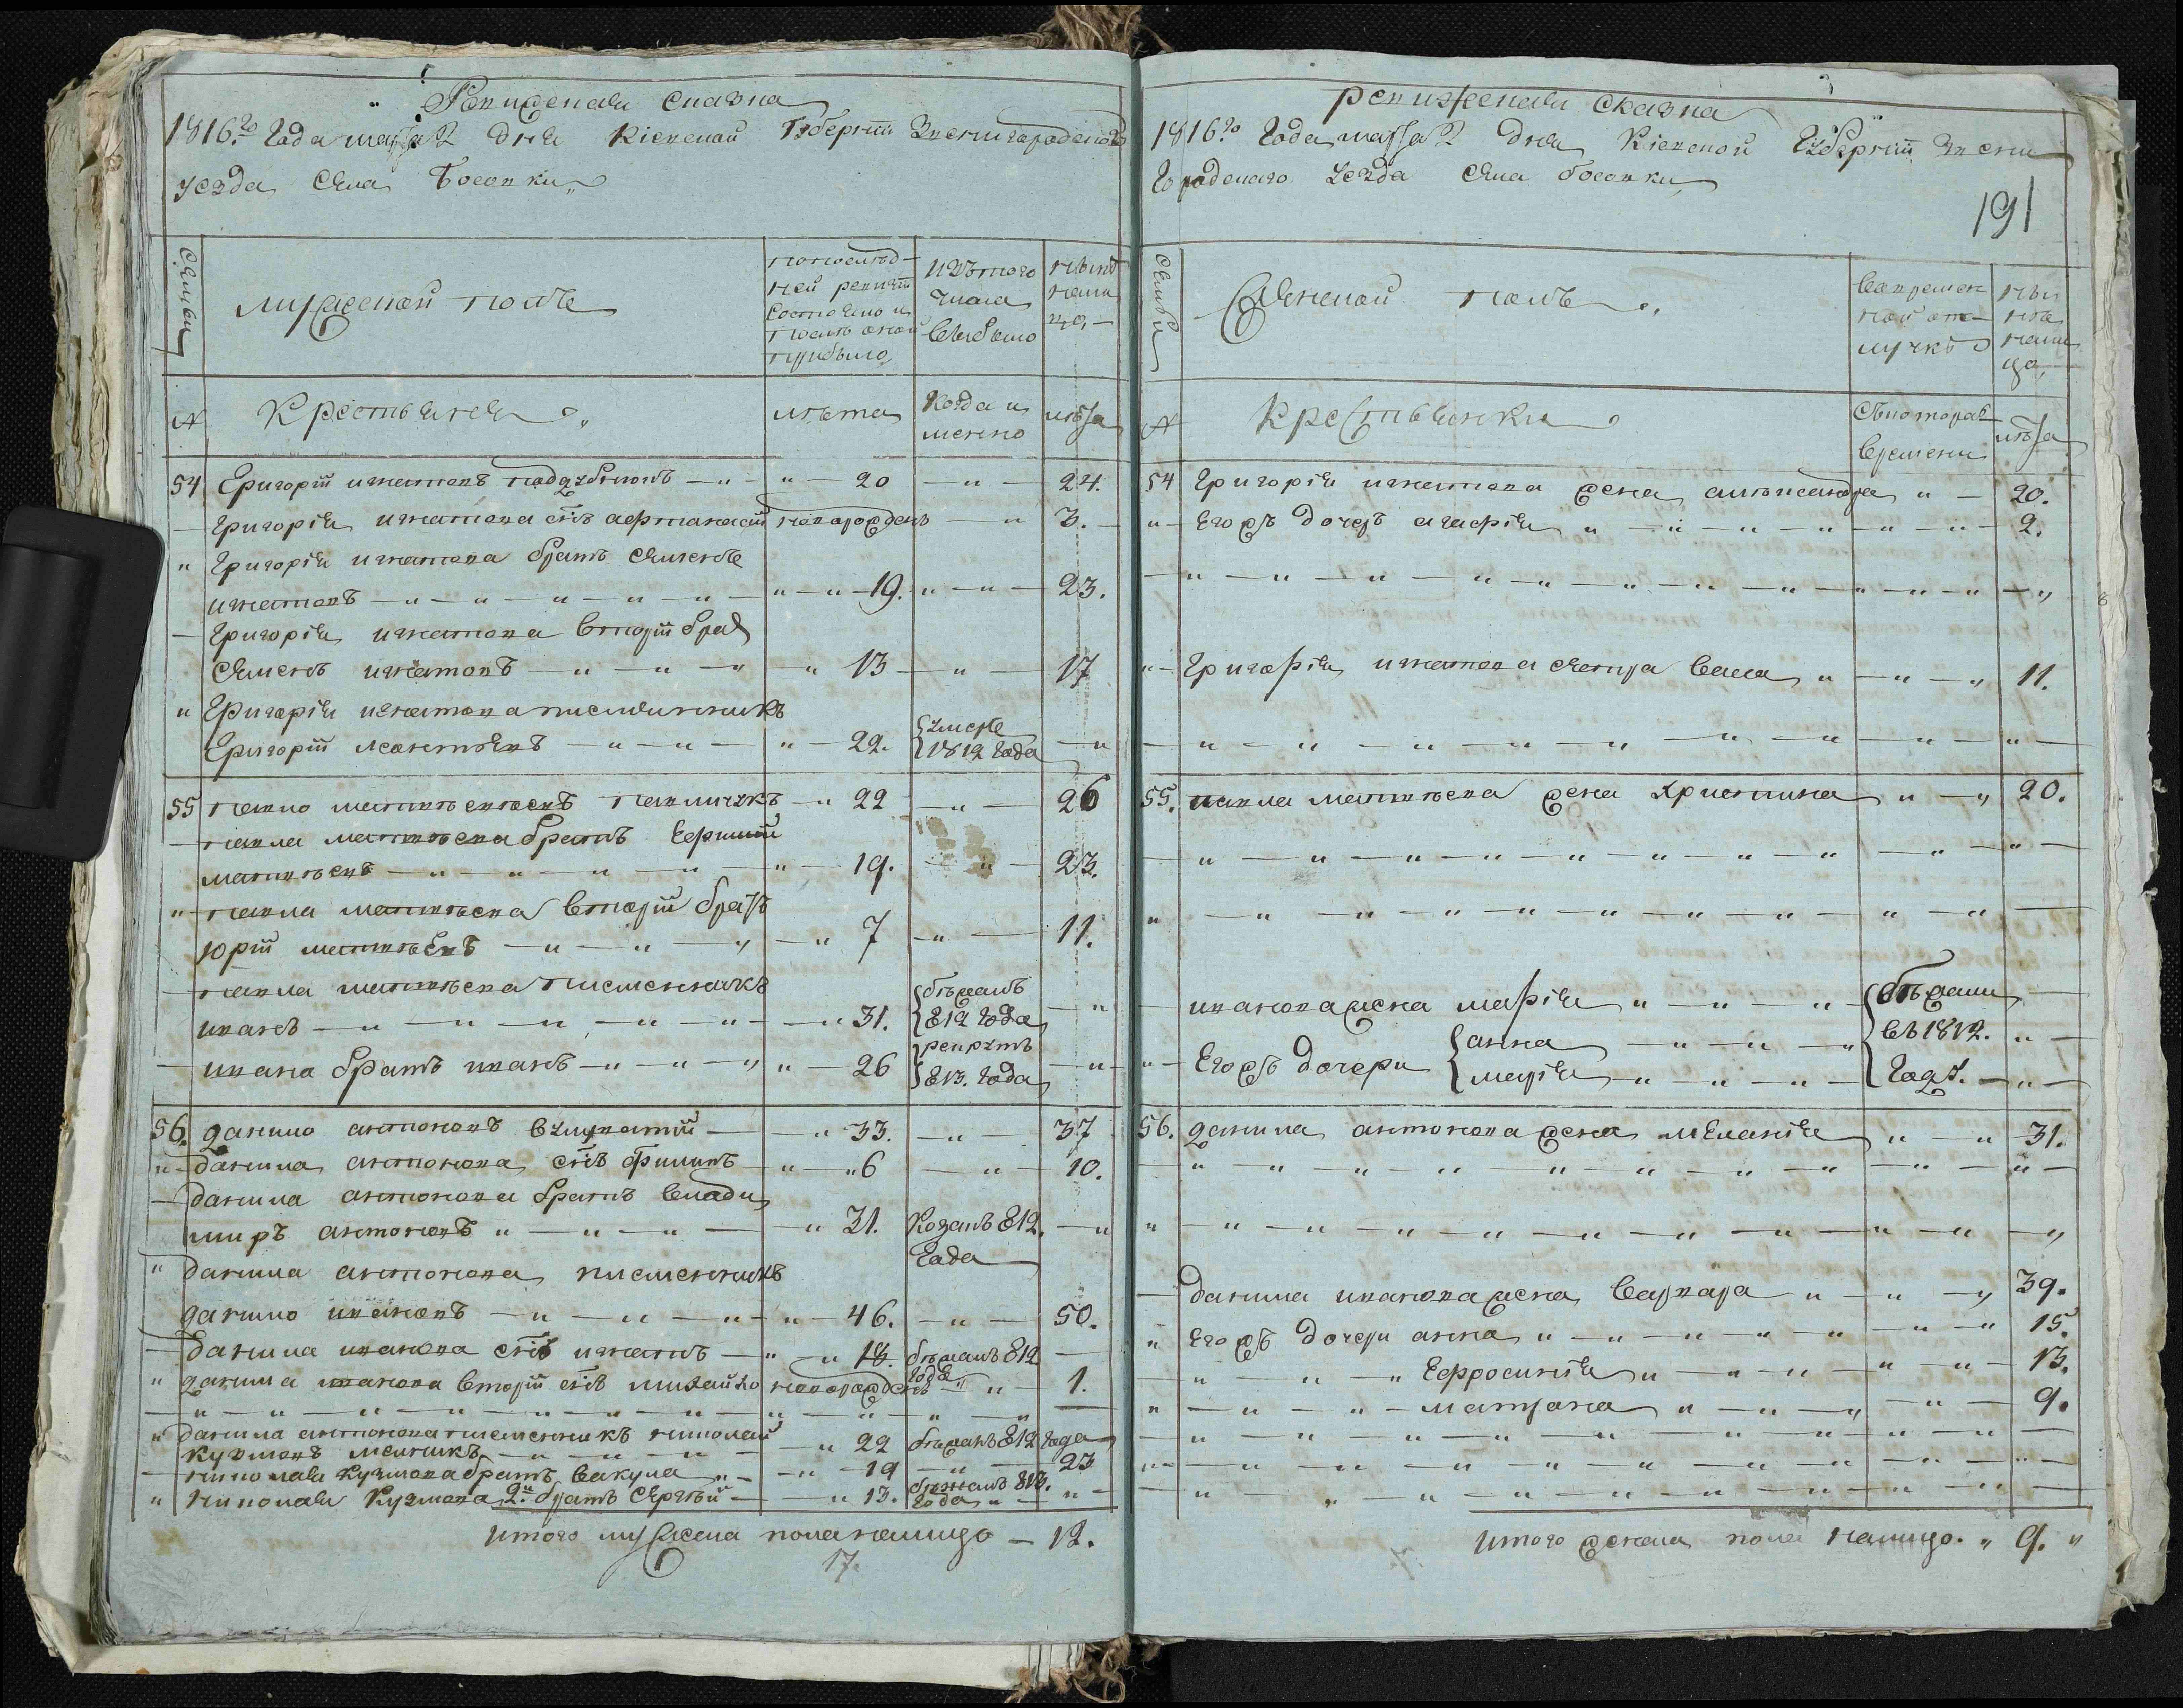 Ревижская сказка
1816го года мая 2 дня Киевской Губернии Звенигородского
уезда села Босовки
семьи
мужеской полъ
по последней ревизии состояло и после оной прибыло
изъ того числа выбыло
ныне налицо
№
Крестьяне
лета
когда именно
лета
54 Григорий игнатовъ поддубный 20 24.
Григория игнатова сынъ афанасий новорожденъ 3.
Григория игнатова братъ
игнатовъ 19. 23.
Григория игнатова вторий братъ
семенъ игнатовъ 13 17
Григория игнатова письменникъ
Григорий 22. умре 1812 года
55 павло матвеевъ павличукъ 22 26
павла матвеева братъ
матвеевъ 19. 23.
павла матвеева вторий братъ
юрий матвеевъ 7 11.
павла матвеева писменникъ
иванъ 31. бежалъ 812 года
ивана братъ иванъ 26 рекрутъ 813. года
56. данило антоновъ 33. 37
данила антонова сынъ филипъ 6 10.
данила антонова братъ влади
миръ антоновъ 31. козакъ 812. года
данила антонова писменникъ
данило ивановъ 46. 50.
данила иванова сынъ игнатъ 18. бежалъ 812 года
данила иванова вторий сынъ михайло новорожденъ 1.
данила антонова писменникъ николай
кузмовъ мелникъ 22 бежалъ 812 года
николая кузмова братъ вакула 19 23
николая кузмова 2й братъ сергей 13. бежалъ 813. года
итого мужеска пола налицо 12.
17.
ревижская сказка
1816го года мая 2 дня Киевской Губернии Звени
городского уезда села босовки
191
семьи
Женской полъ
во временной отлучке
ныне налицо
№
Крестьянки
съ котораго времени
лета
54 Григория игнатова жена александра 20.
Его жъ дочеръ агафия 2.
Григория игнатова сестра васса 11.
55. павла матвеева жена христина 20.
иванова жена мария
Его жъ дочери анна
мария
бежали въ 1812. году.
56. данила антонова жена мелания 31.
данила иванова жена варвара 39.
Его жъ дочери анна 15.
Ефросиния 13.
матрона 9.
итого женска пола налицо. 9.